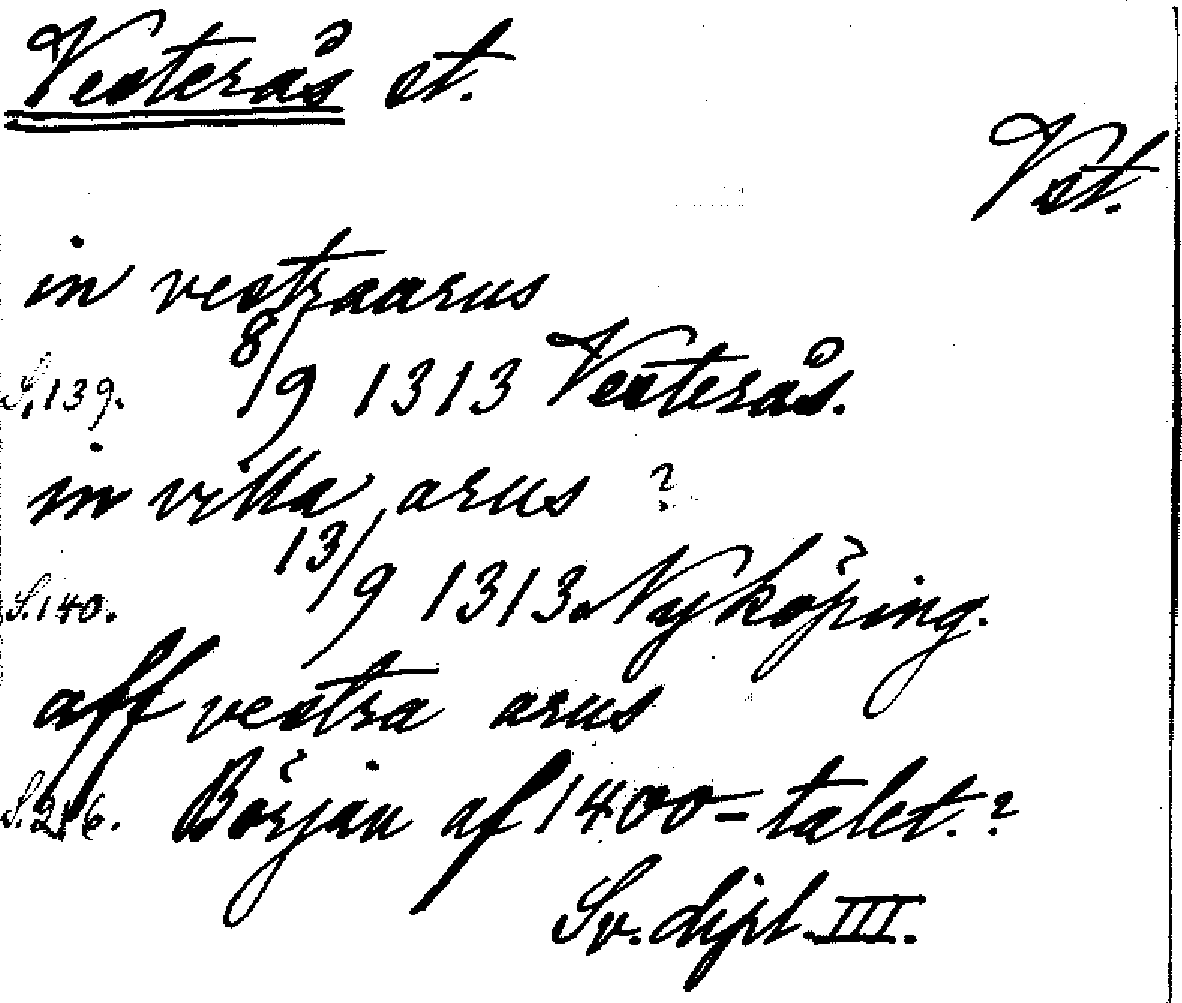 Vesterås st.
Vst.
in vestraarus
S. 139. 8/9 1313 Vesterås.
in villa arus ?
S. 140. 13/9 1313. Nyköping.
aff vestra arus
Början af 1400-talet.?
Sv. dipl. III.